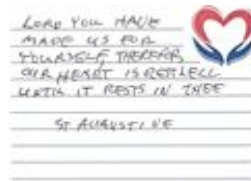 LORD YOU HAVE
MADE US FOR
YOURSELF, THEREFOR
OUR HEART IS RESTLELL
UNTIL IT RESTS IN THEE
ST AUGUSTINE